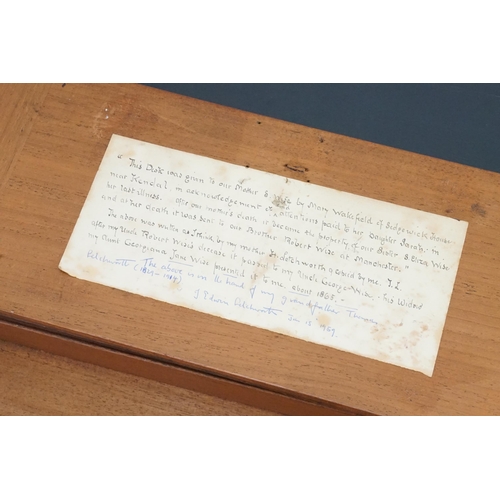 "This Desk was given to our Mother S. Wise by Mary Wakefield of Sedgewick House
near Kendal, in acknowledgement of attentions paid to her Daughter Sarah, in
her last illness. after our mother's death it became the property of our Sister S Eliza Wise
and at her death it was sent to our Brother Robert Wise at Manchester."
The above was written as I think by my mother
after my Uncle Robert Wise's decease it passed to my Uncle George Wise, his Widow
my Aunt Georgiana Jane Wise presented it to me about 1885."
The above is in the hand of my grandfather Thomas
(1849-1917)
J Edwin
Jan 18 1969.